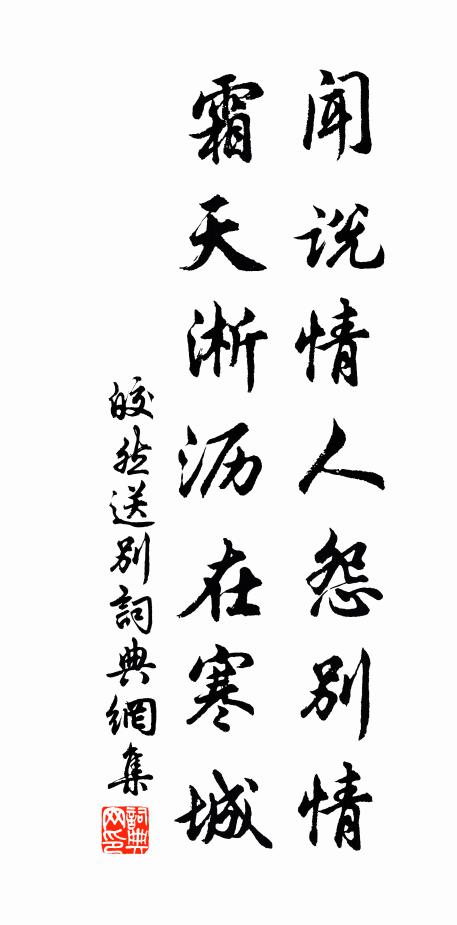 闻说情人怨别情
霜天淅沥在寒城
皎然送别詞典網集
詞典网印